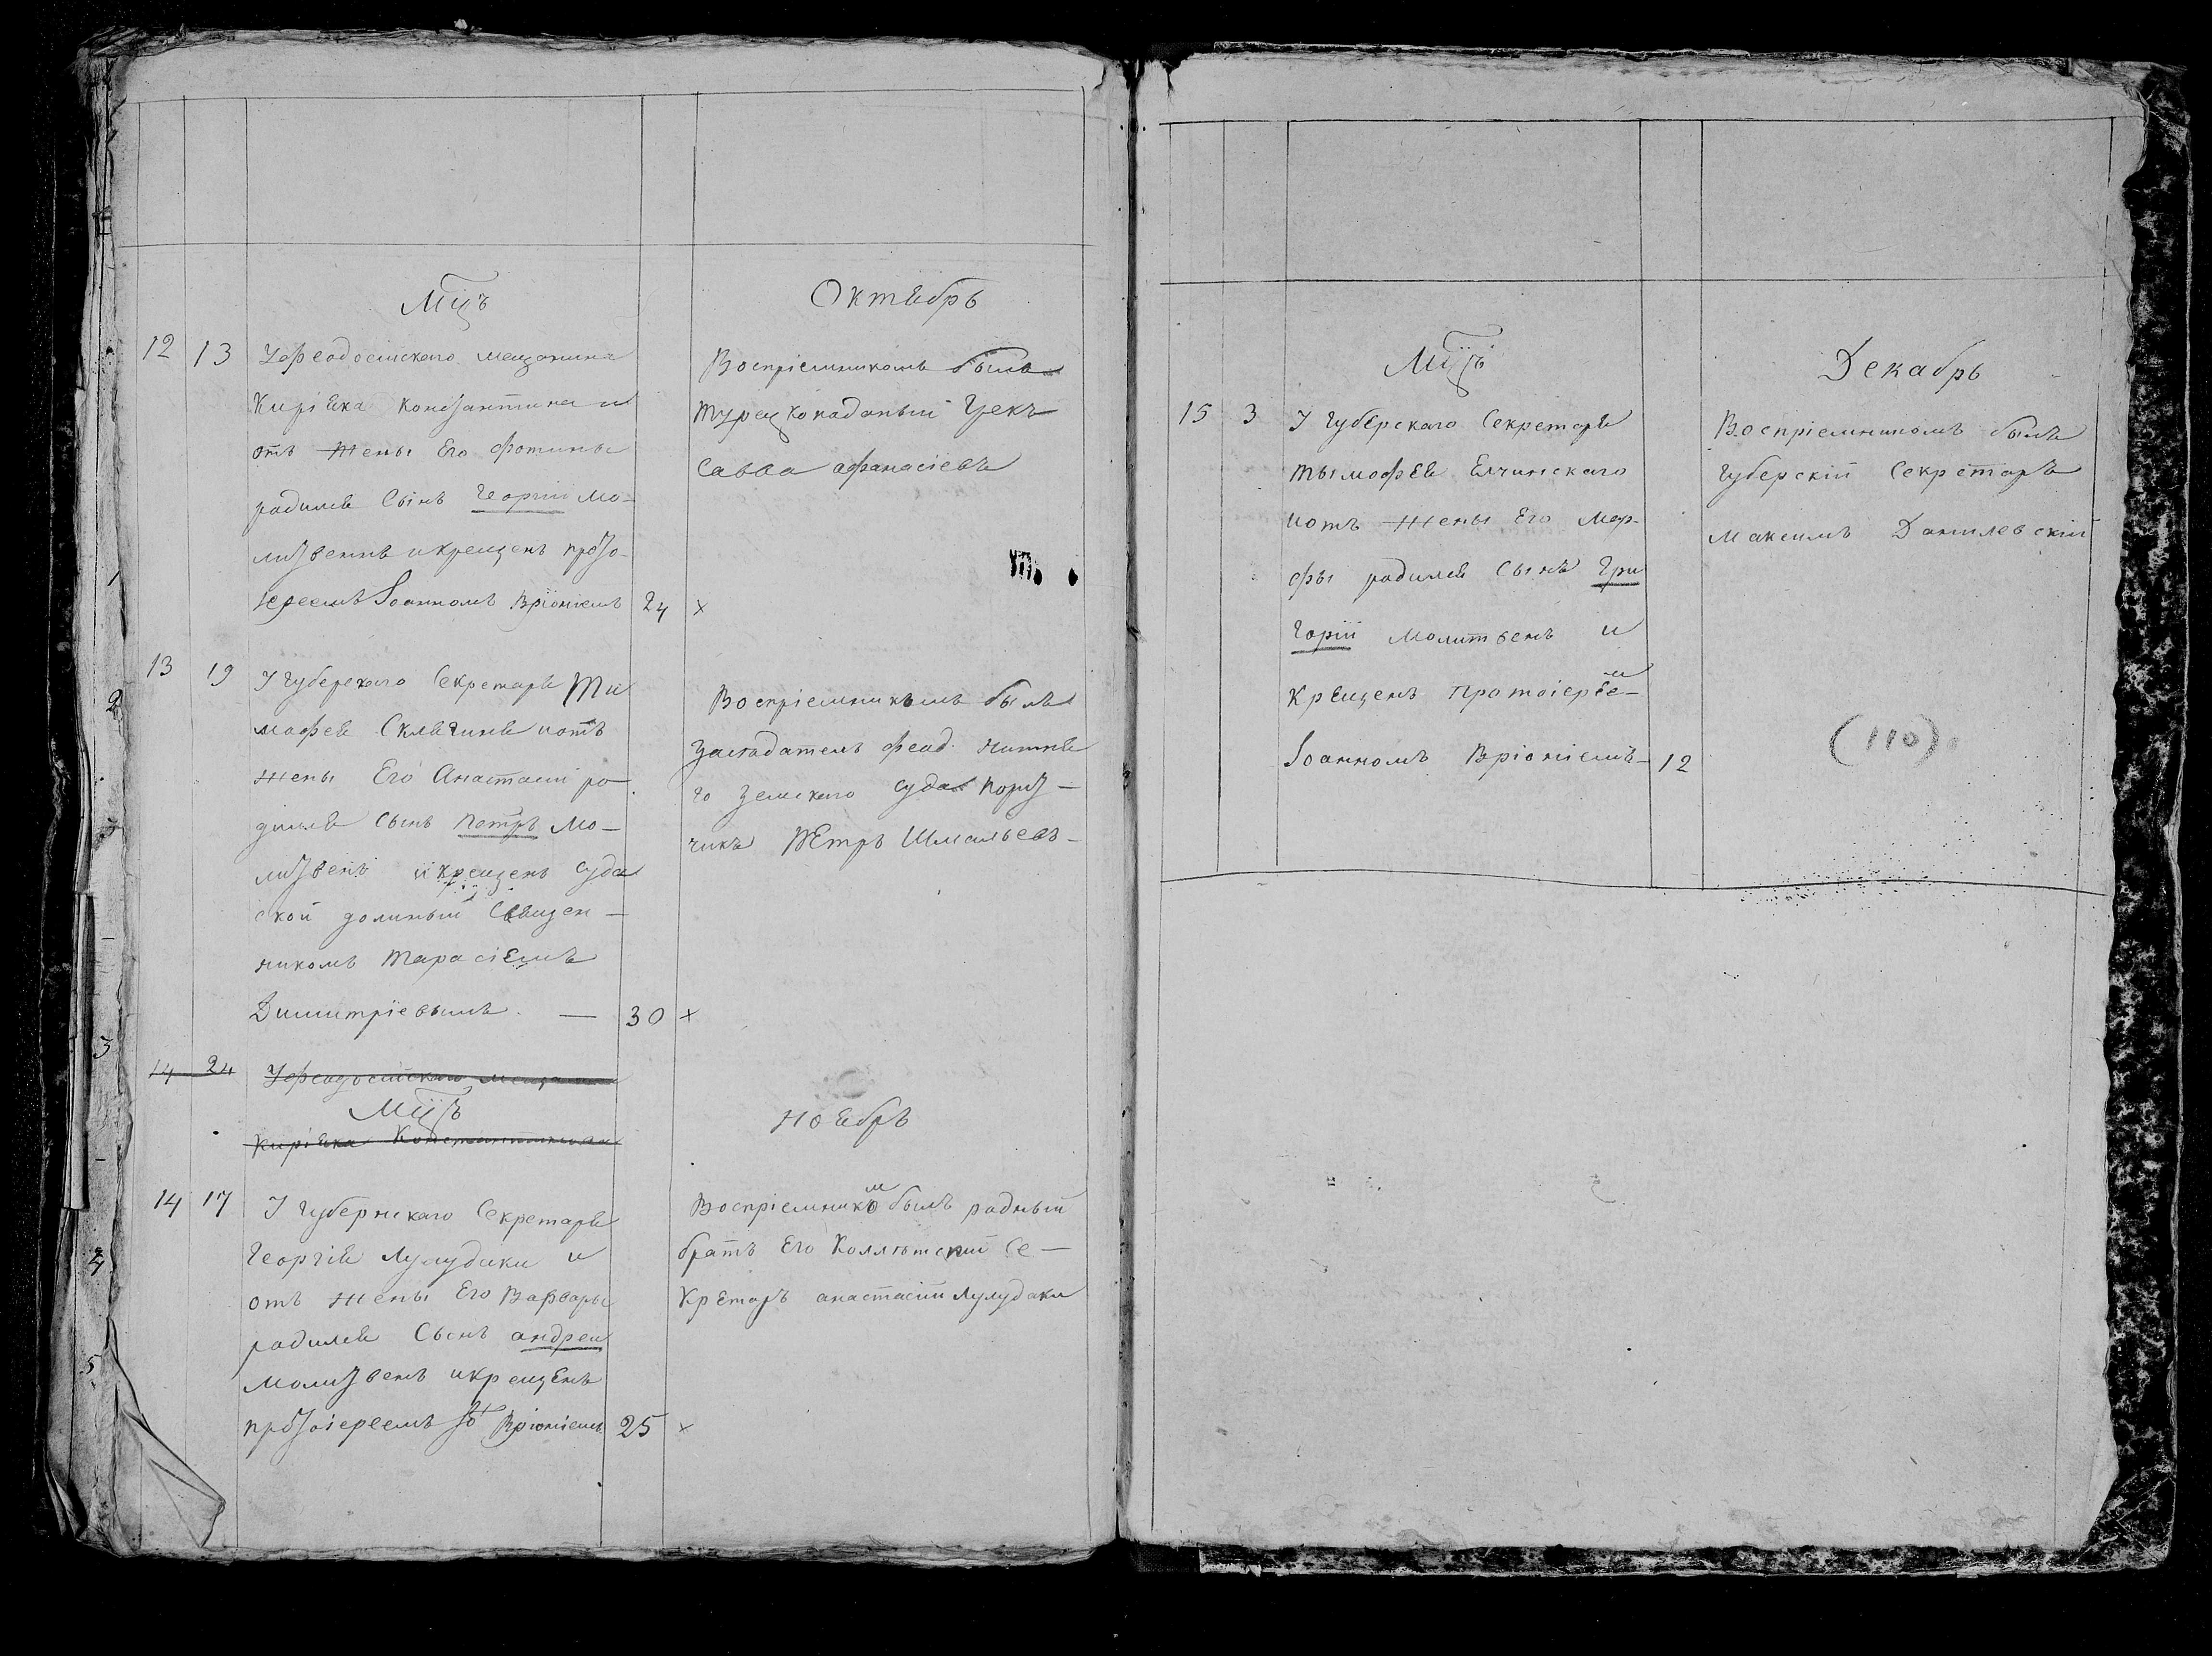 Мцъ
Октябрь
12 13 Уфеодосийскаго мещанина
Киріяка Константина и
отъ жены Его Фотины
радился Сынъ Георгий мо-
литвенъ и крещенъ прото-
іереемъ Іоанномъ Вріонiемъ 24 ×
Воспріемникомъ былъ
Турецкоподаный Грекъ
Савва афанасіевъ
13 19 У губерскаго Секретаря Ти
мофея Склягина иотъ
жены Его Анастасіи ро-
дился Сынъ Петръ Мо-
литвенъ и крещенъ Суда
ской долиный Священ-
никомъ Тарасіемъ
Димитріевымъ. — 30 ×
Воспріемникомъ былъ
Заседатель феод. нижня
го земскаго суда Пору-
чикъ Петръ
14 24 Уфеодосийскаго мещани
Мцъ
Ноябрь
Киріяка Константинова
14 17 У Губернскаго Секретаря
Георгія Лулудаки и
отъ жены Его Варвары
радился Сынъ андреи
молитвенъ икрещенъ
протоіереемъ Іо Вріонiемъ 25 ×
Воспріемникомъ былъ радный
братъ Его Коллѣжский Се-
Кретарь анастасій Лулудаки
Мцъ
Декабрь
15 3 У Губерскаго Секретаря
тымофея Елчинскаго
иотъ жены Его Мар-
фы радился Сынъ Гри
горій Молитвенъ и
Крещенъ Протоіерѣе-м
Іоанномъ Вріонiемъ- 12
Воспріемникомъ былъ
Губерскій Секретарь
Максимъ Данилевскій
(110)
1
2
3
4
5